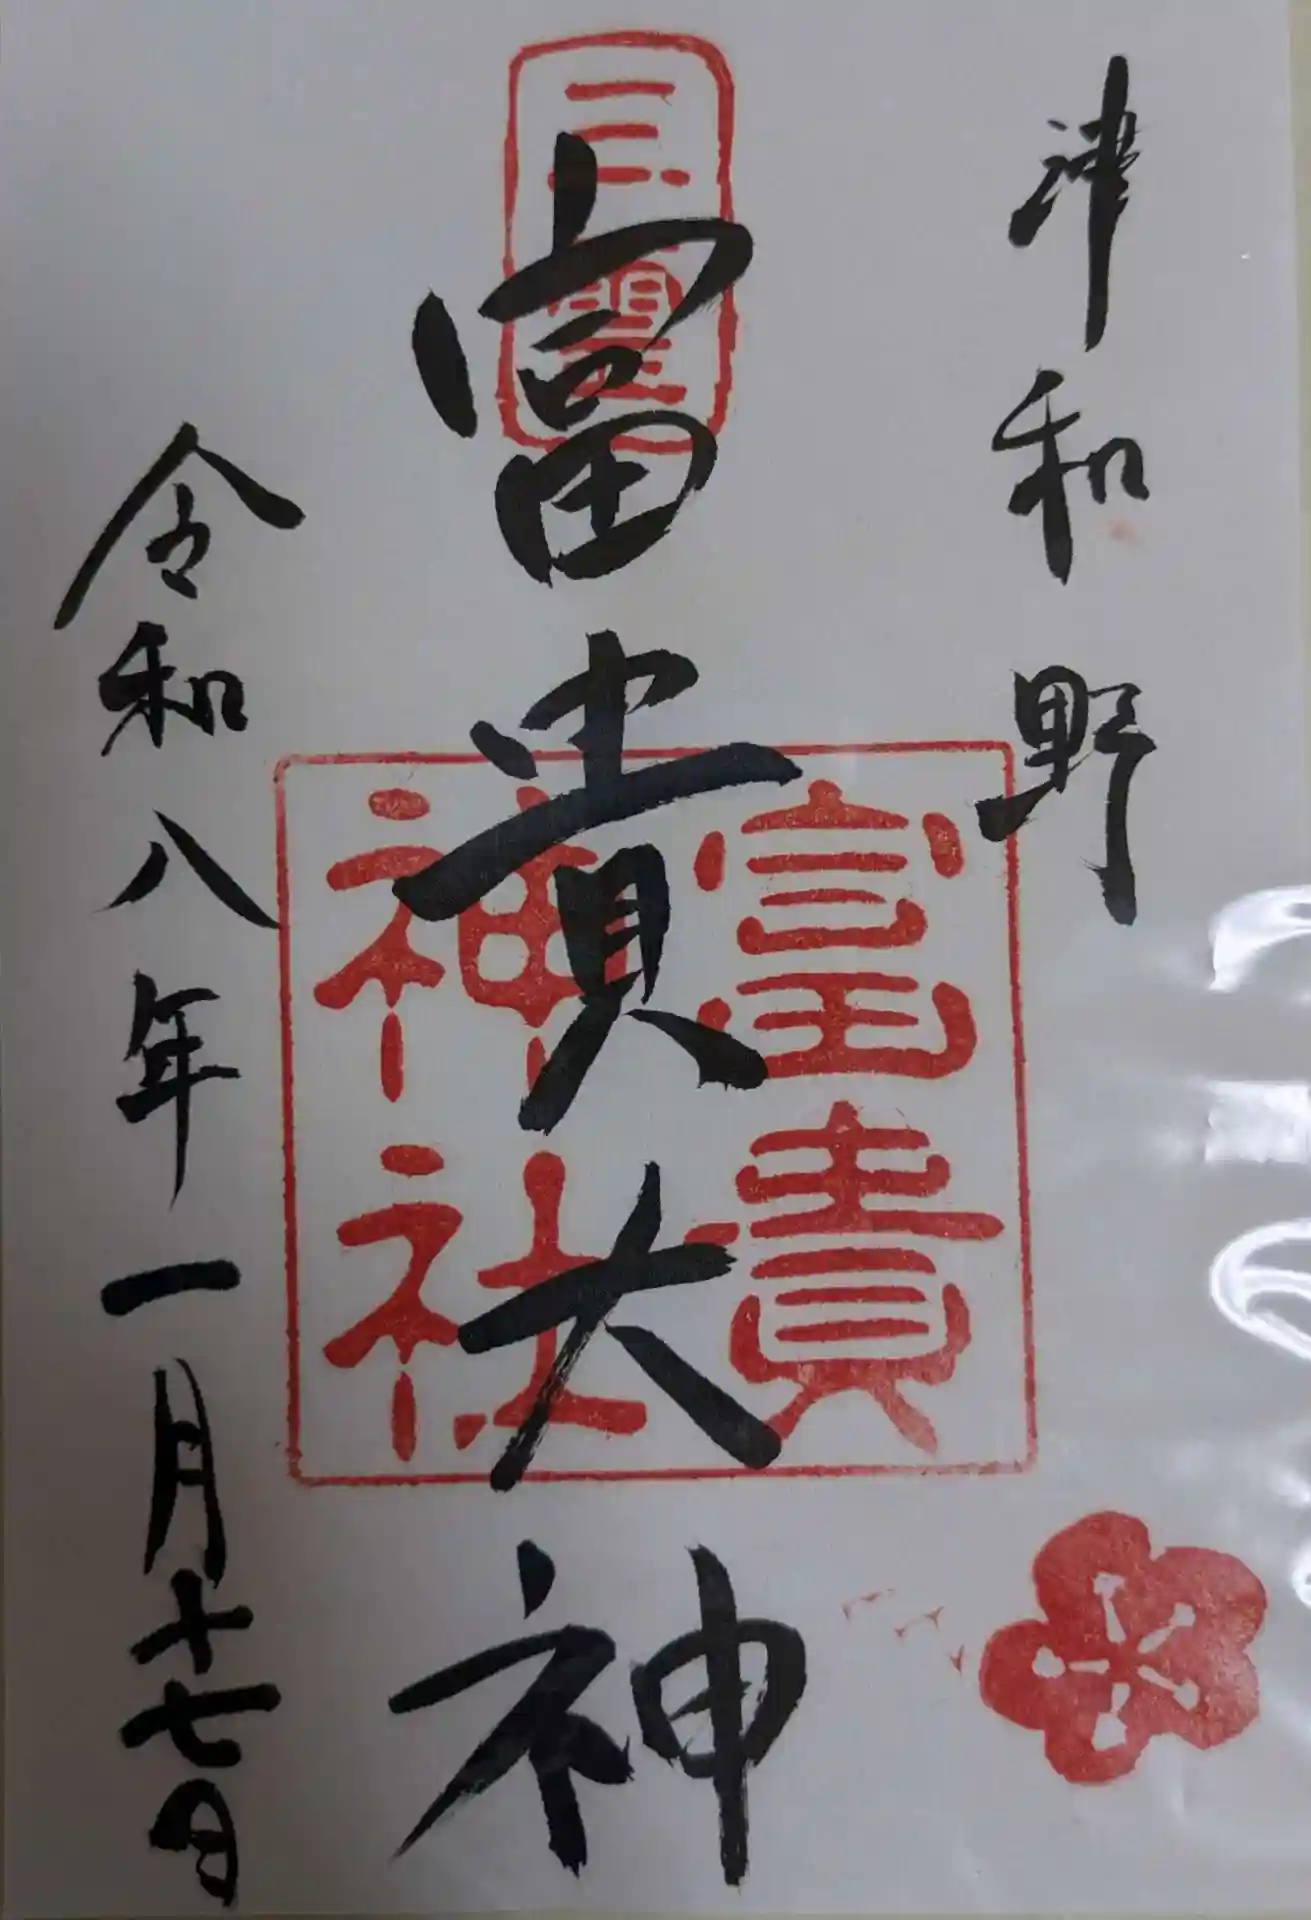 津和野
富貴大神
富貴
神社
令和八年一月十七日